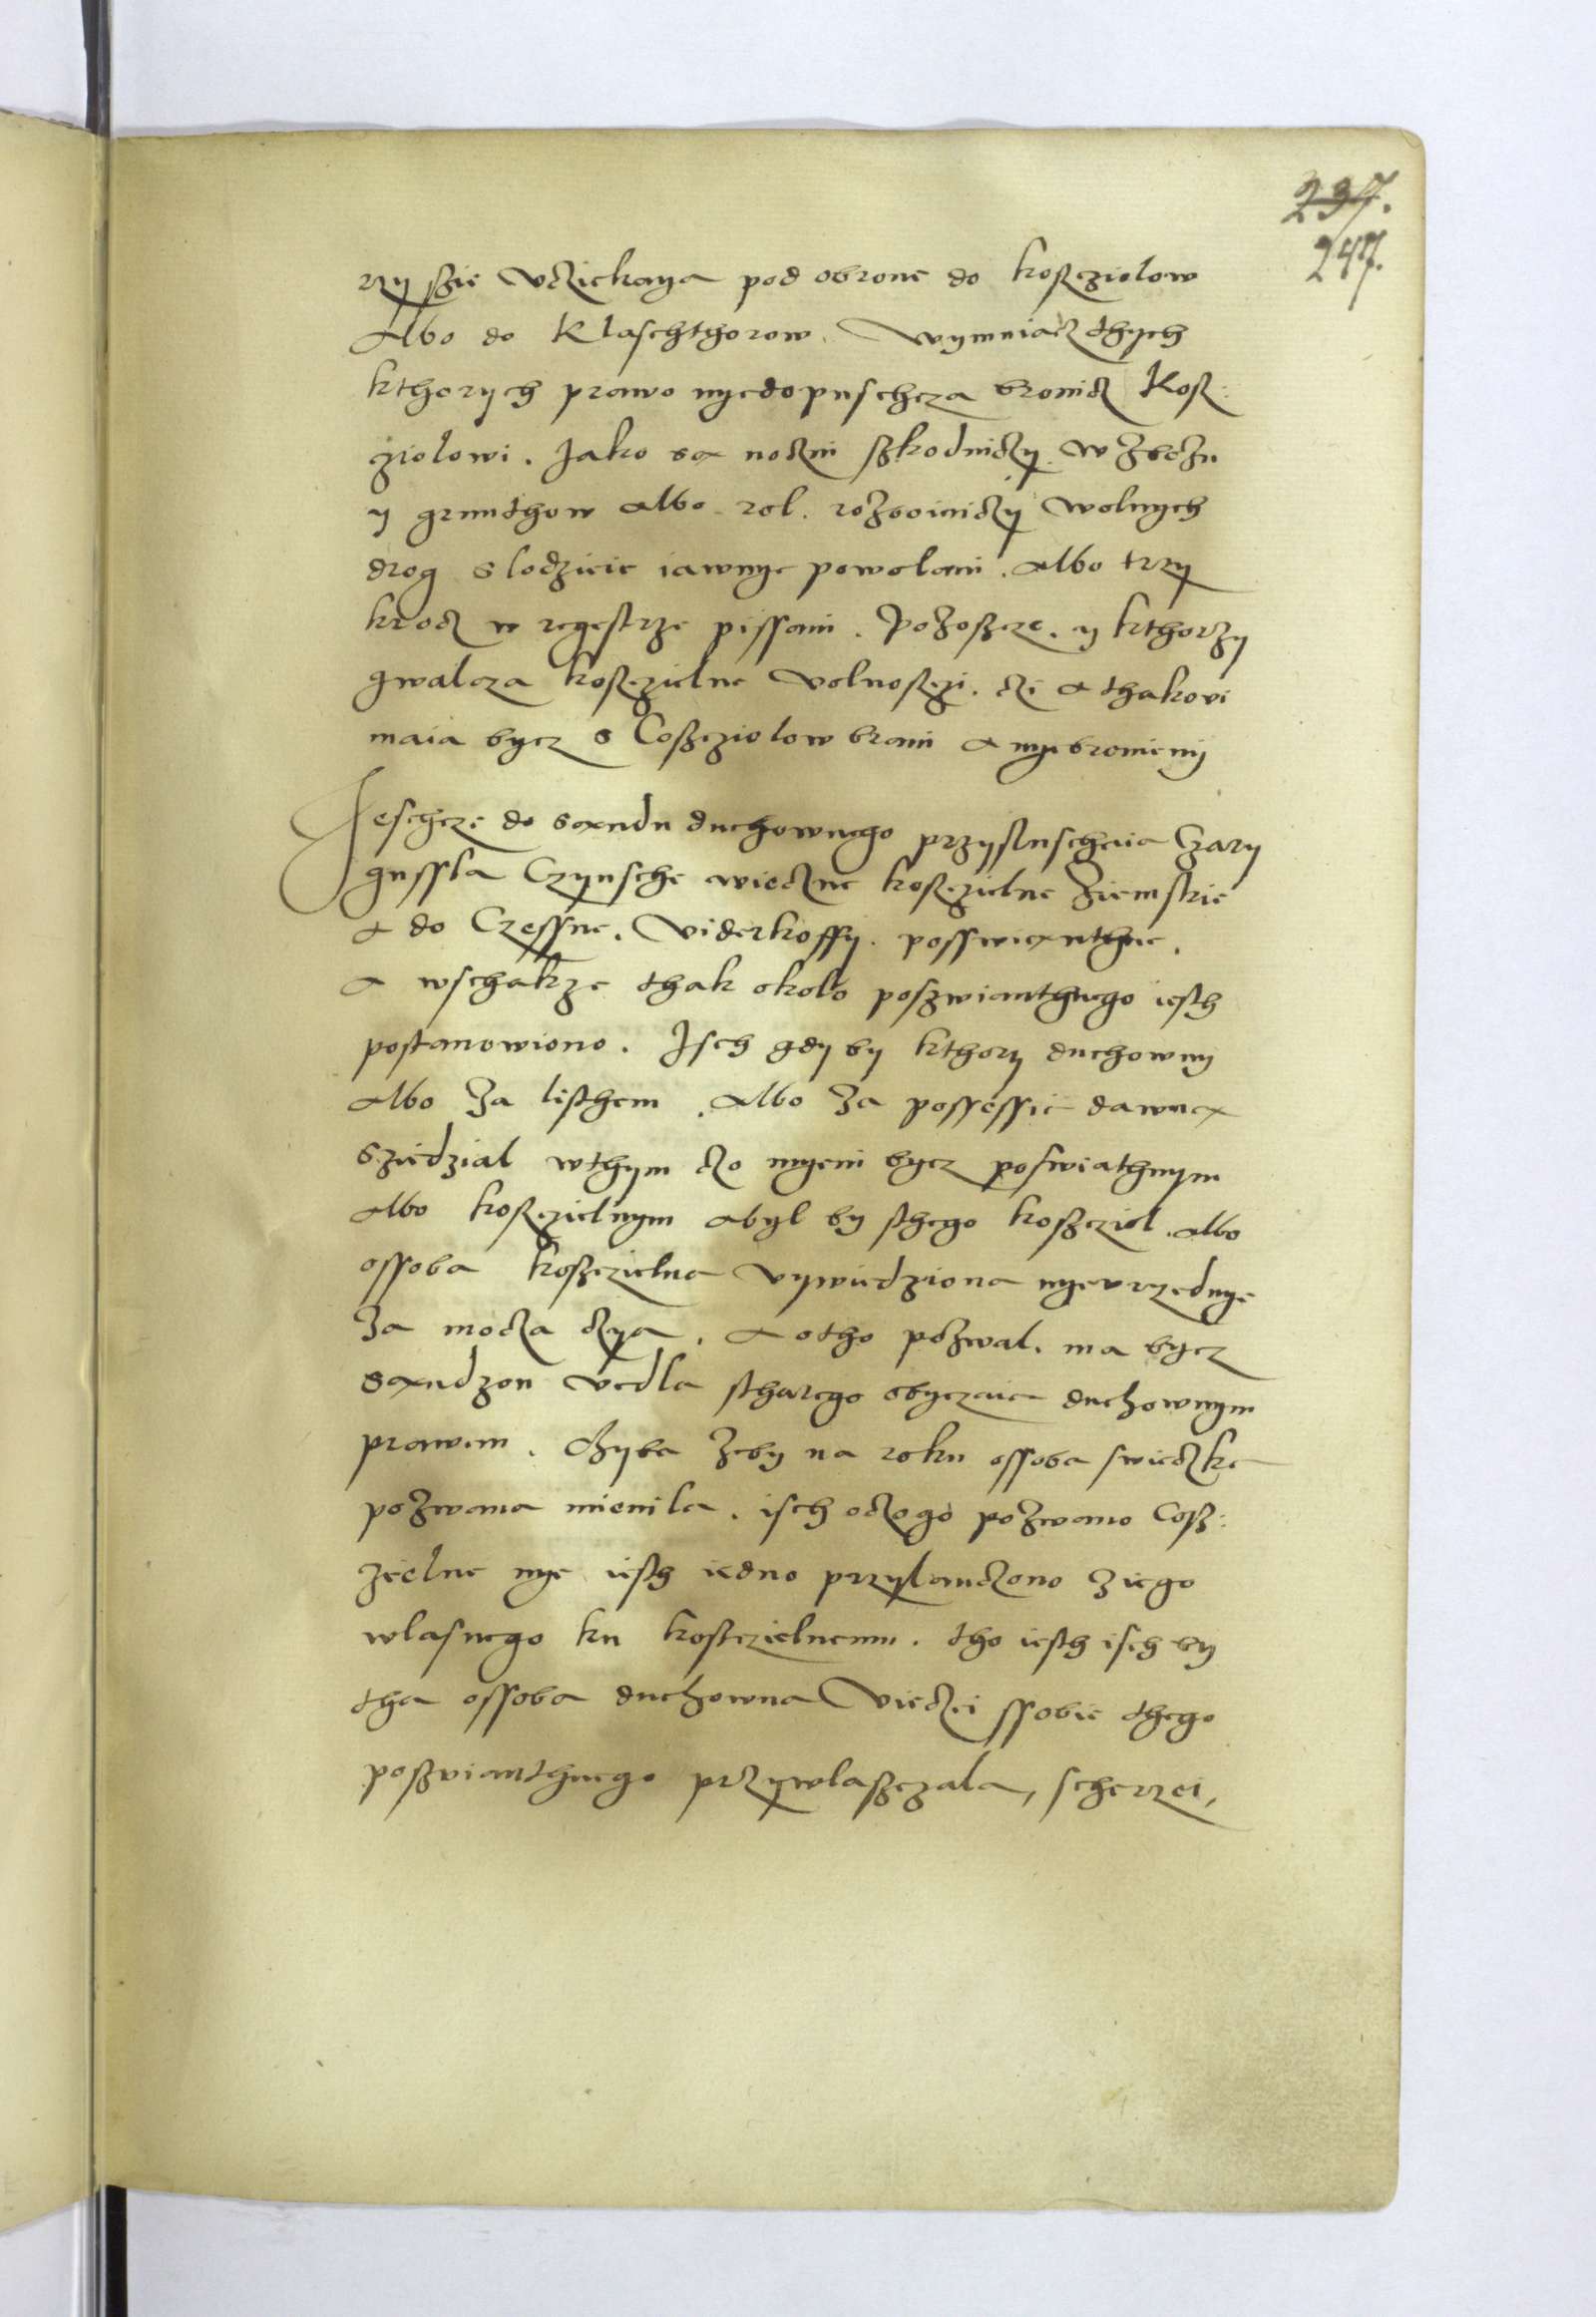 237.
247.
rzy szie vcziekaya pod obrone do koszcziolow
Albo do Klaschthorow. Wymniacz thych
kthorych prawo nyedopuschcza bronicz Kosz:
cziolowi. Jako sa noczni szkodniczy. w Zbozu
y grunthow albo rol. rozboiniczy wolnych
drog slodzieie iawnye powolani. Albo trzy
krocz w regestrze pissani. Pozoszcze. y kthorzy
gwalcza koszczielne volnoszczi. czi a thakovi
maia bycz s Coszcziolow brani a nyebronieny
Jeschcze do sandu duchownego przysluschaia Czary
gussla Czynsche wieczne koszczielne Ziemskie
a do Czessne. Viderkoffy. posswianthne.
a wschakze thak okolo poszwianthnego iesth
postanowiono. Isch gdy by kthory duchowny
Albo Za listhem. Albo Za possessie dawna
sziedzial wthym czo myeni bycz poswiathnym
albo koszczielnym abyl by sthego koszcziel. albo
ossoba koszczielna vywiedziona nyevrzednye
Za mocza czya. A otho pozwal. ma bycz
sandzon vedla stharego obyczaia duchownym
prawem. Chyba Zeby na roku ossoba swieczka
pozwana mienila. isch oczogo pozwano Cosz:
zielne nye iesth iedno przylanczono Ziego
wlasnego ku koszczielnemu. tho iesth isch by
tha ossoba duchowna Vieczei ssobie thego
poszvianthnego przywlaszczala, scherzei,